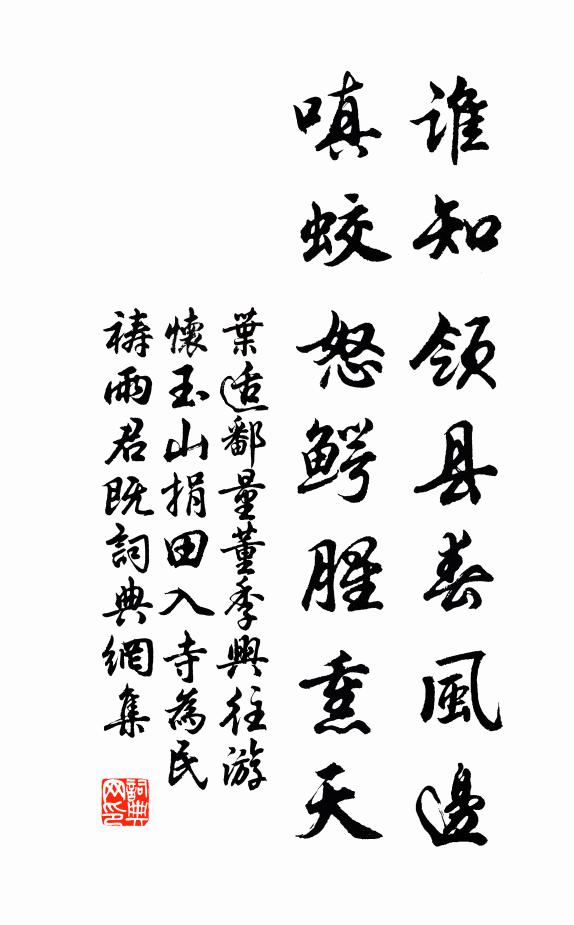 谁知領县春風邊
嗔蛟怒鳄腥熏天
葉适鄱量董季興往游
懷玉山捐田入寺為民
禱雨君既詞典網集
詞典網印